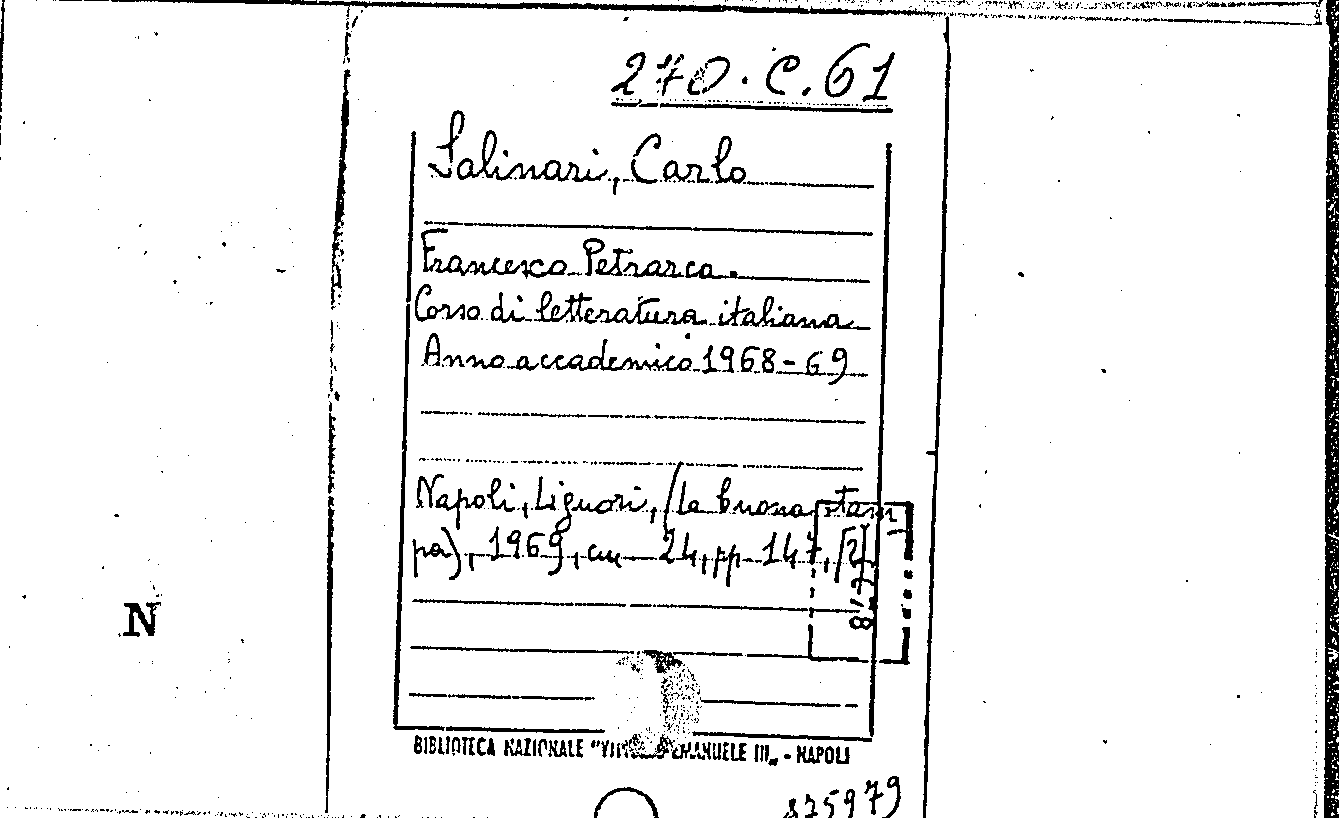 270.C.61
Salinari, Carlo
Francesco Petrarca.
Corso di letteratura italiana
Anno accademico 1968-69
Napoli, Liguori, (la buona stam
pa), 1969, cm 24, pp. 147,
N
BIBLIOTECA NAZIONALE "VITTORIO EMANUELE III„ - NAPOLI
875979